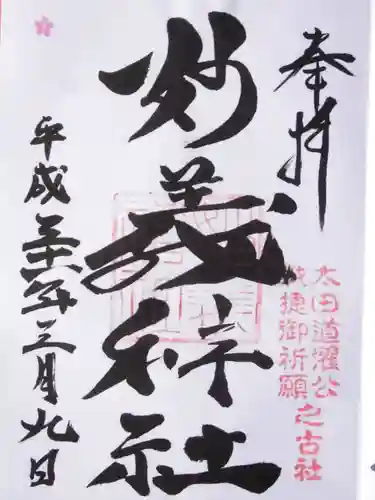 奉拝
太田道灌公
戦捷御祈願之古社
妙義神社
平成三十一年三月九日